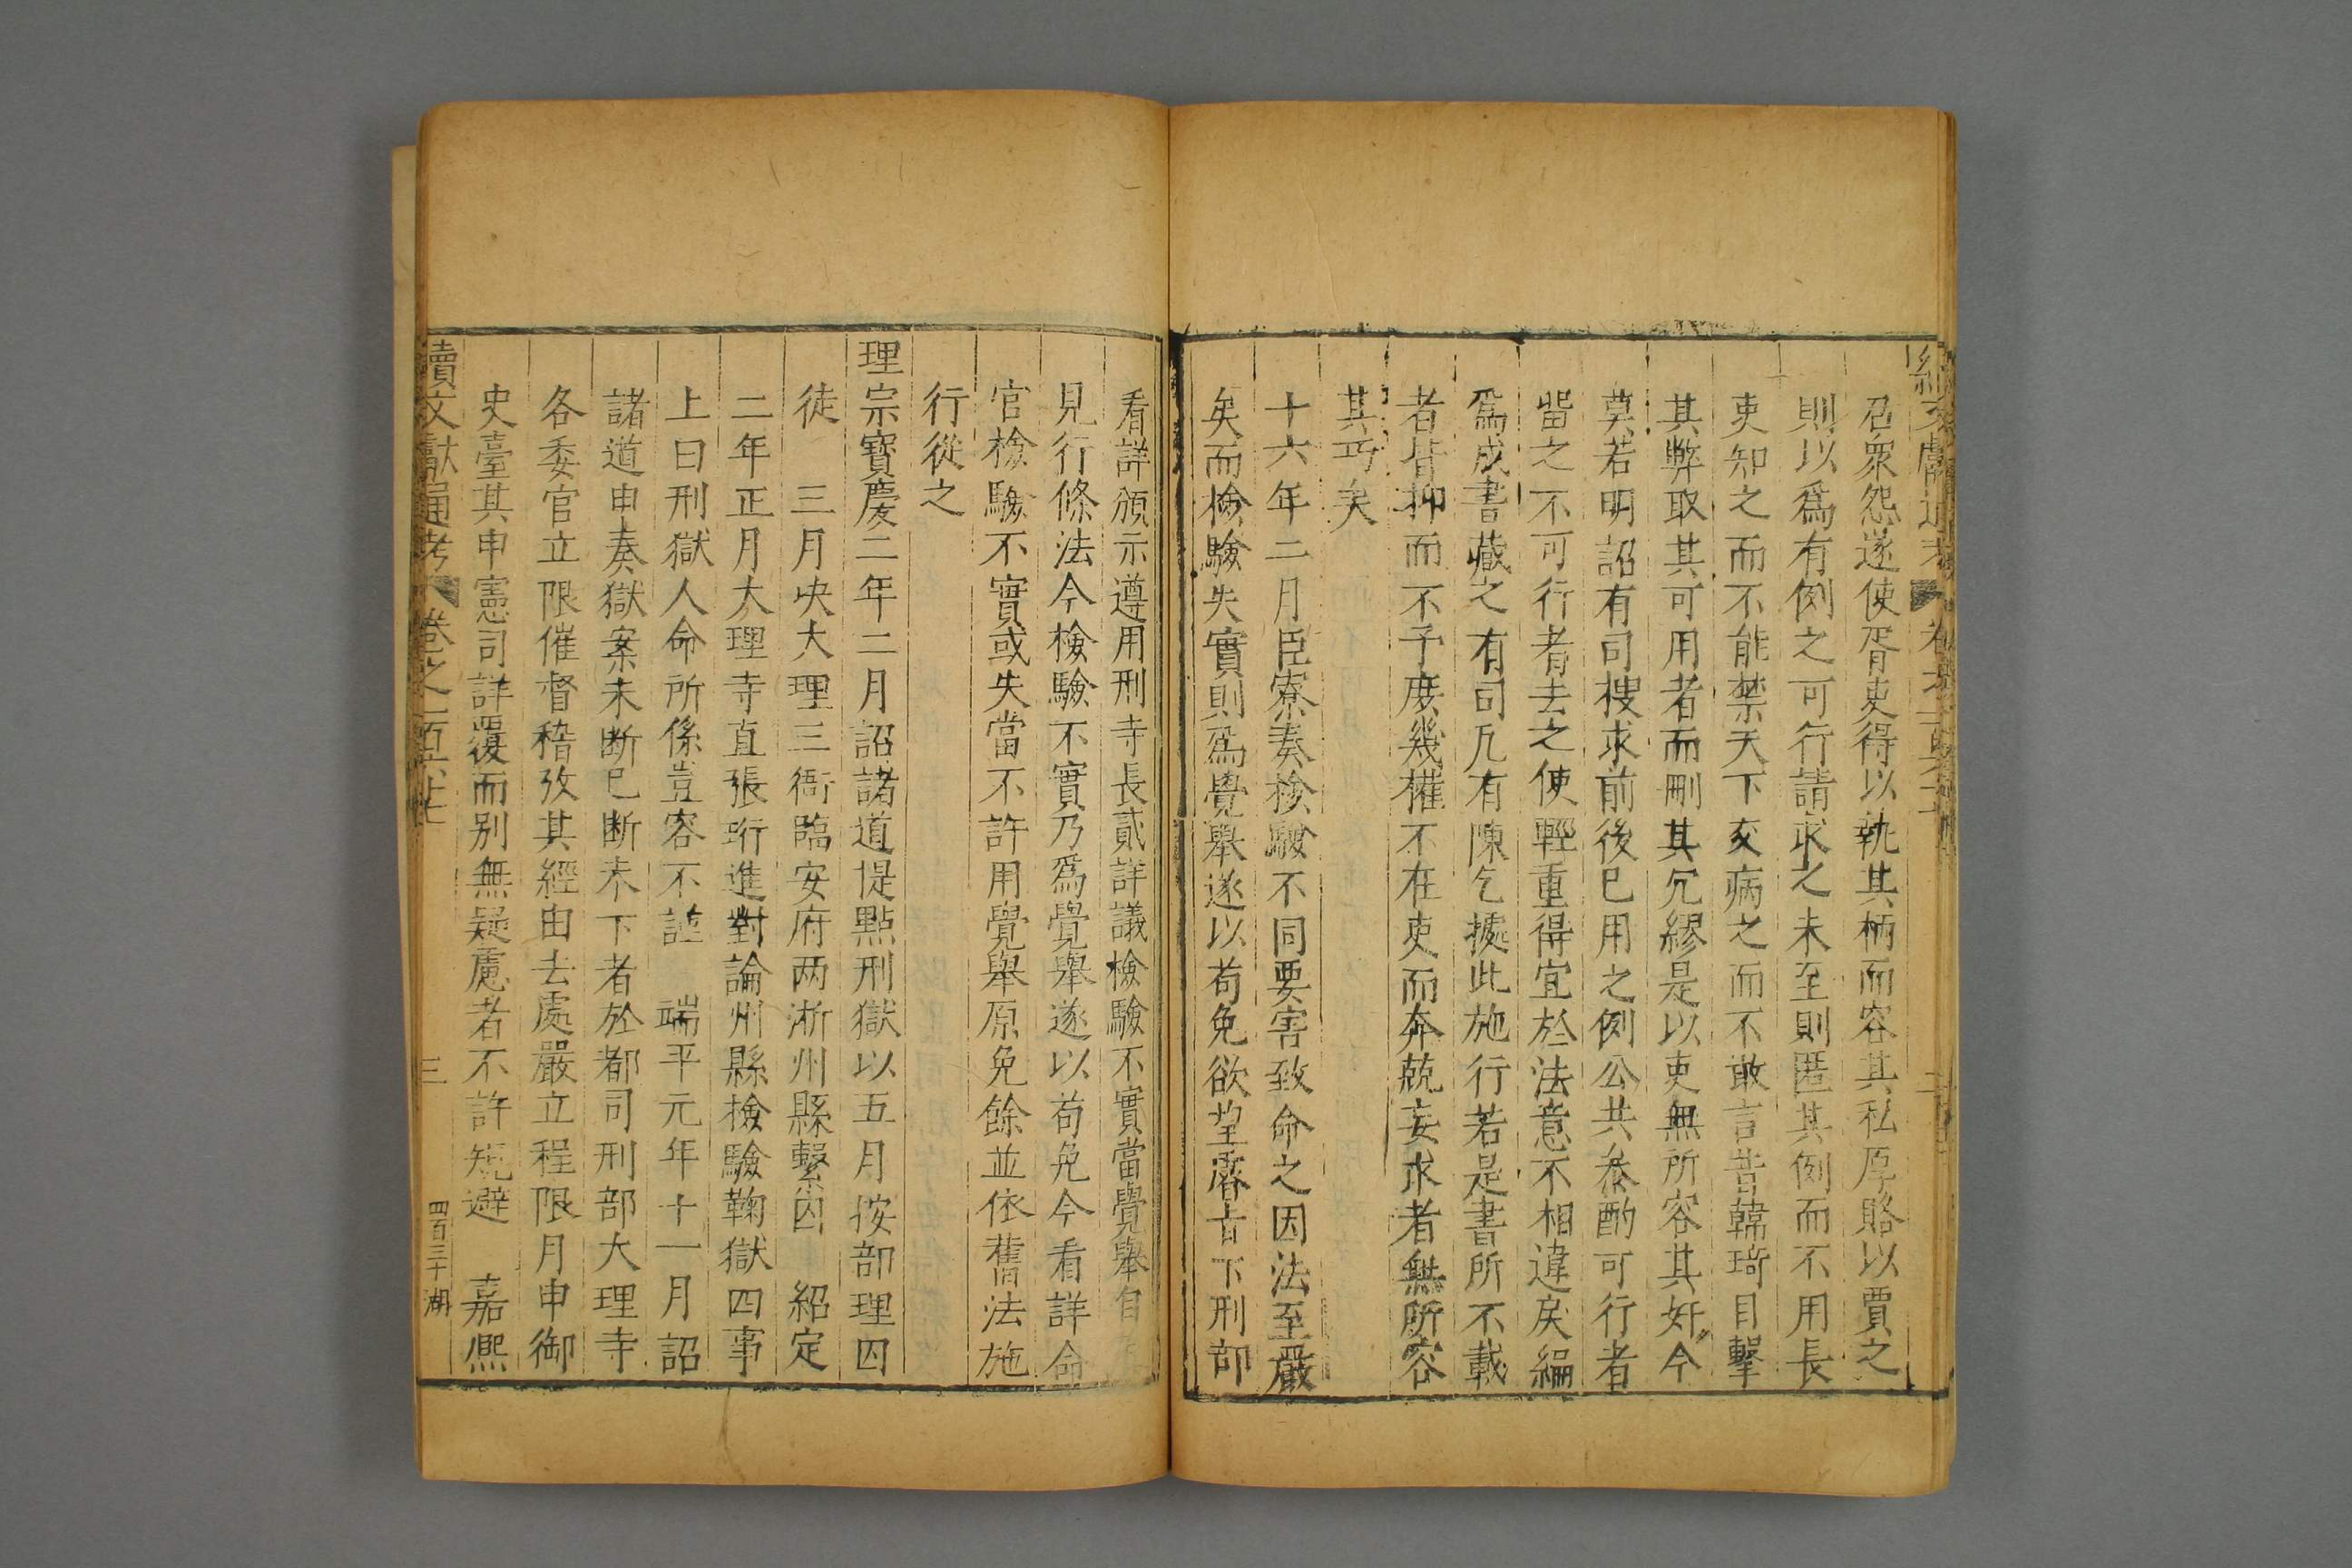 召衆怨遂使胥吏得以執其柄而容其私厚賂以賈之
則以爲有例之可行請求之未至則匿其例而不用長
吏知之而不能禁天下亥病之而不敢言昔韓琦目擊
其弊取其可用者而刪其冗繆是以吏無所容其奸今
莫若明詔有司搜求前後已用之例公共叅酌可行者
畱之不可行者去之使輕重得宜於法意不相違戾編
爲成書藏之有司凡有陳乞據此施行若是書所不載
者皆抑而不予庶幾權不在吏而奔兢妄求者無所容
其巧矣
十六年二月臣寮奏檢驗不同要害致命之因法至嚴
矣而檢驗失實則爲覺舉遂以苟免欲望睿旨下刑部
看詳頒示遵用刑寺長貳詳議檢驗不實當覺舉自
見行條法今檢驗不實乃爲覺舉遂以苟免今看詳命
官檢驗不實或失當不許用覺舉原免餘並依舊法施
行從之
理宗寶慶二年二月詔諸道提點刑獄以五月按部理囚
徒　三月決大理三衙臨安府两淅州縣繫囚　紹定
二年正月大理寺直張珩進對論州縣檢驗鞠獄四事
上曰刑獄人命所係豈容不謹　端平元年十一月詔
諸道申奏獄案未断已断未下者於都司刑部大理寺
各委官立限催督稽攷其經由去處嚴立程限月申御
史臺其申憲司詳覆而别無疑慮者不許規避　嘉熙
續文獻通考　卷之一百六十七　三　四百三十　湖